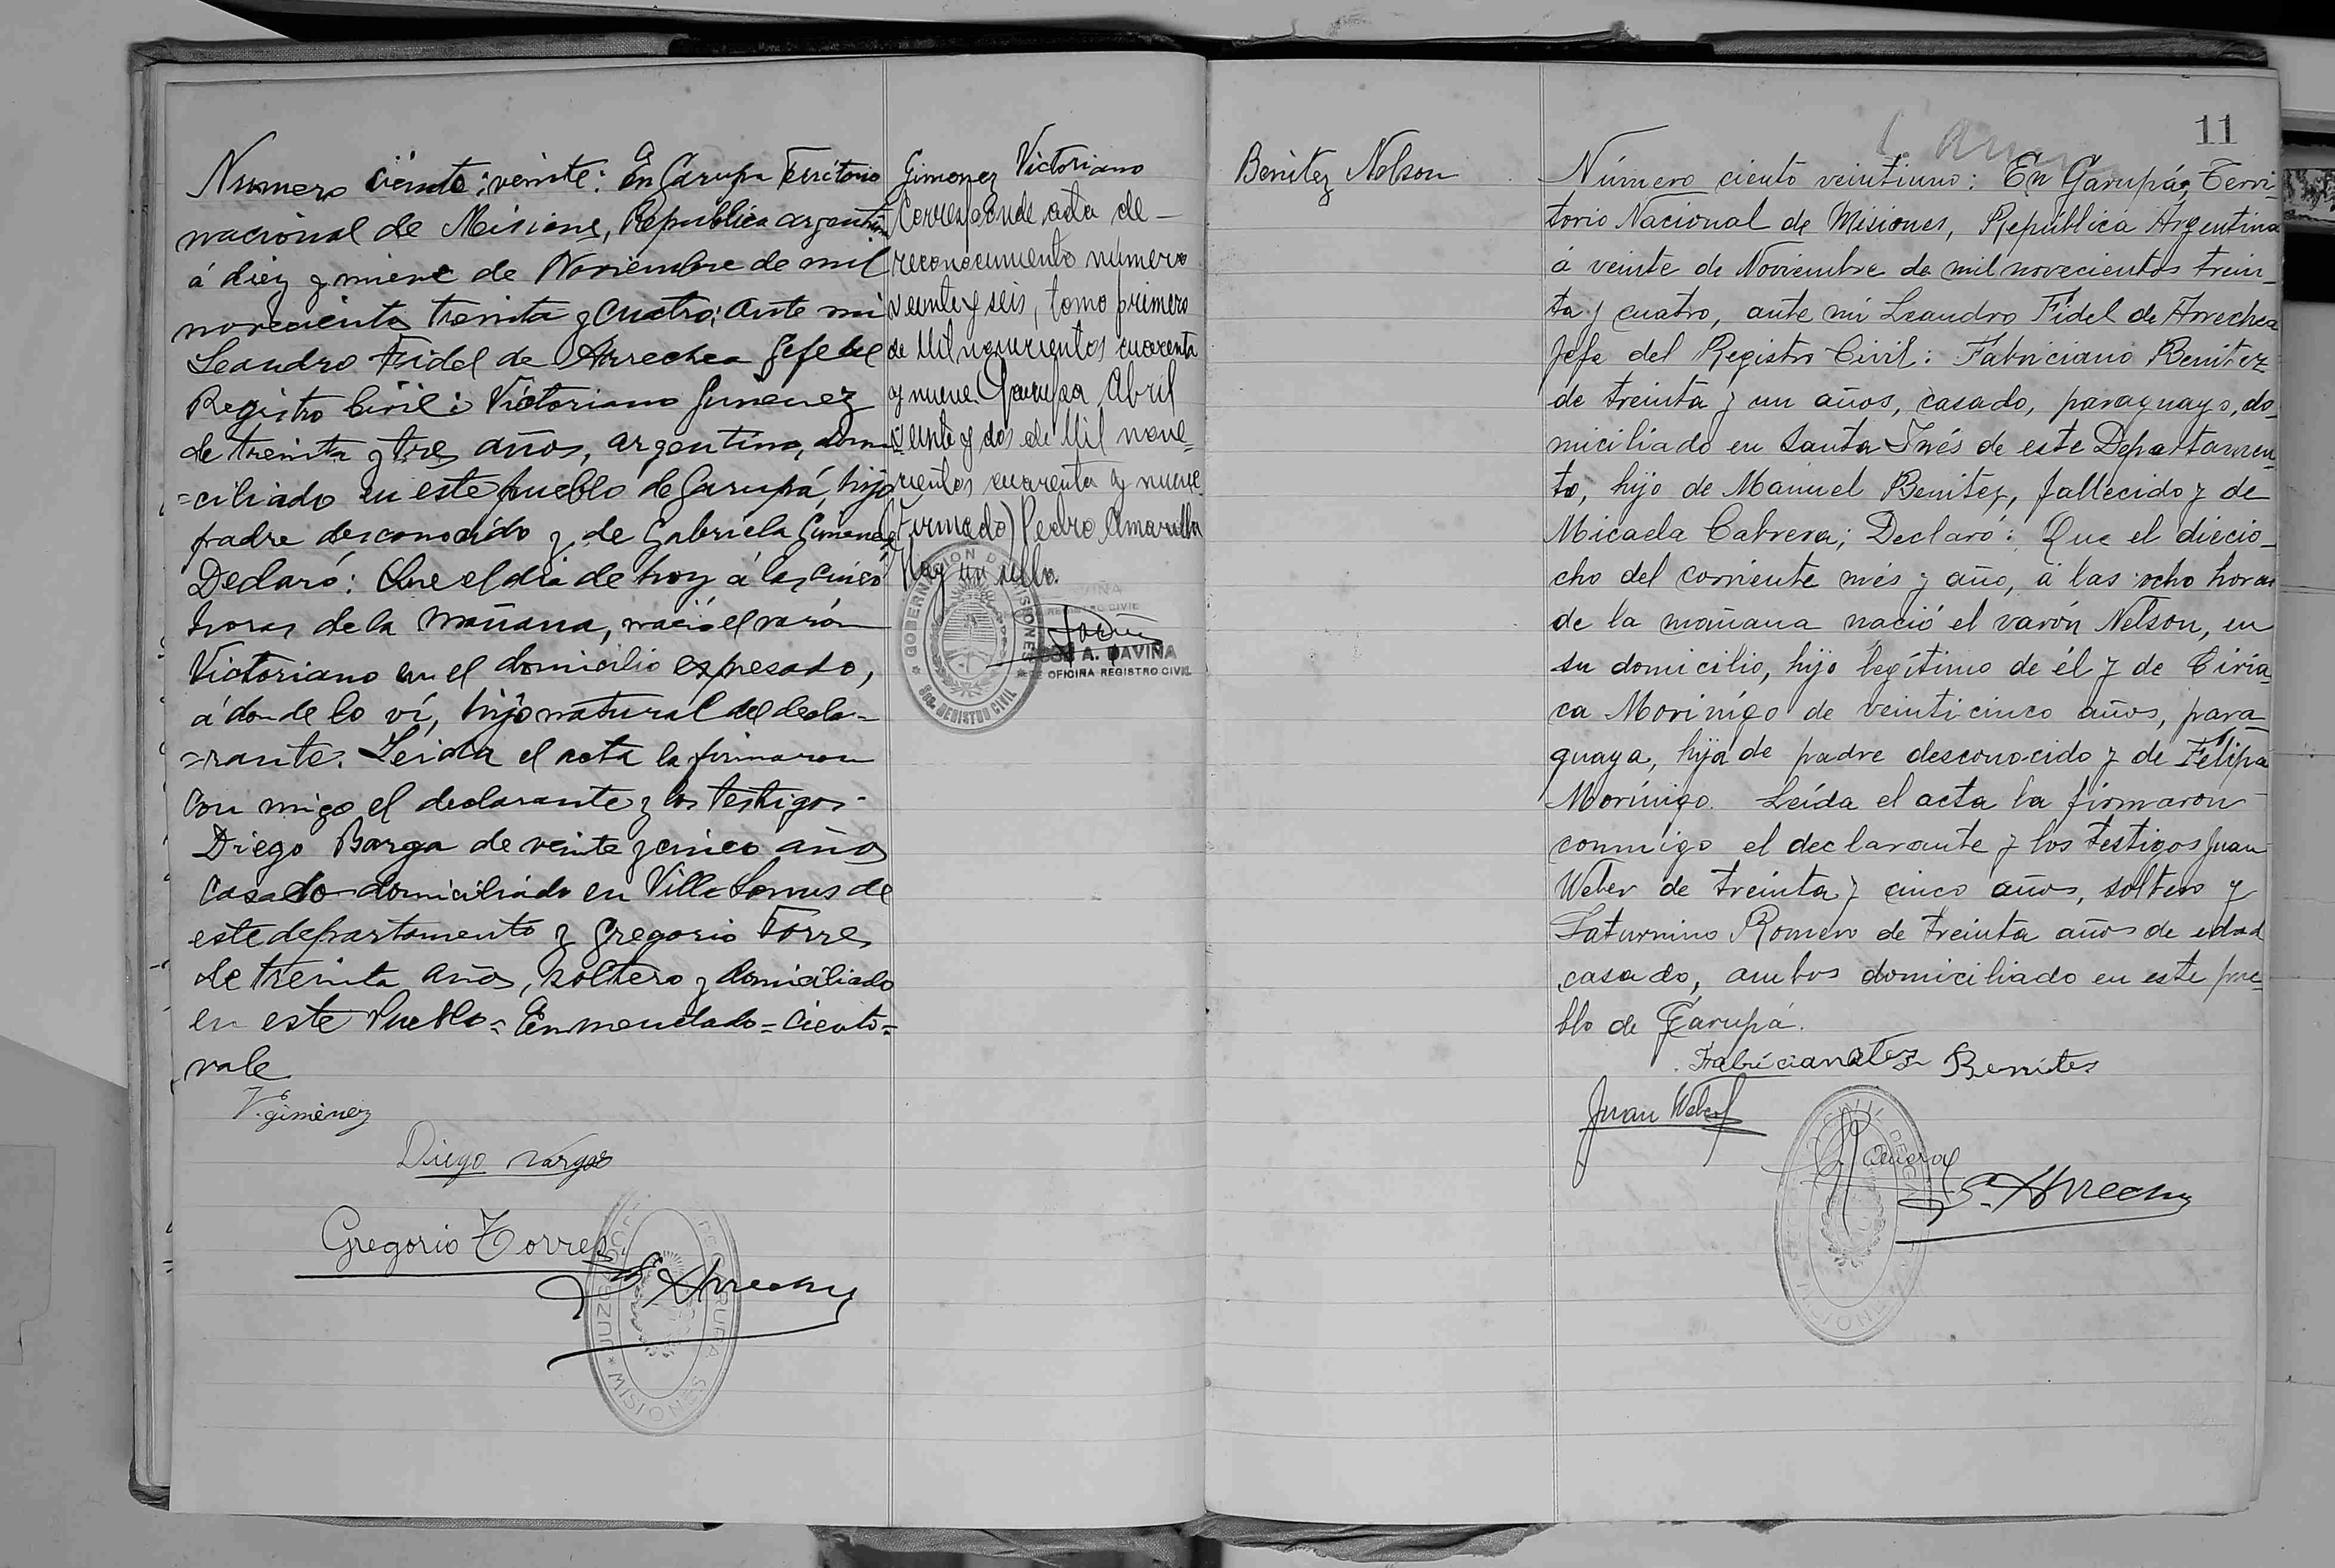 Numero ciento veinte: En Garupa Territorio
nacional de Misiones, Republica argentina
á diez y nueve de Noviembre de mil
novecientos treinta y cuatro; ante mi
Leandro Fidel de Arrechea Gefe del
Registro Civil: Victoriano Gimenez
de treinta y tres años, argentino, domi
=ciliado en este pueblo de Garupá, hijo
padre desconocido y de Gabriela Gimenez
Declaró: Que el dia de hoy á las cinco
horas de la mañana, nació el varón
Victoriano en el domicilio expresado,
á donde lo ví, hijo natural del decla=
=rante. Leida el acta la firmaron
con migo el declarante y los testigos
Diego Barga de veinte y cinco años
casado domiciliado en Villa Lonus de
este departamento y Gregorio Torres
de treinta años, soltero y domiciliado
en este Pueblo = Enmendado = Ciento =
vale
V. gimènez
Diego Vargas
Gregorio Torres
L. Arrechea
JUZGADO
GARUPA
* MISIONES
Gimenez Victoriano
Corresponde acta de —
reconocimiento numero
veinte y seis, tomo primero
de Mil novecientos cuarenta
y nueve Garupa Abril
veinte y dos de Mil nove=
cientos cuarenta y nueve
(Firmado) Pedro Amarilla
Hay un sello.
GOBERNACION DE MISIONES
Sec. REGISTRO CIVIL
A. DAVIÑA
DE OFICINA REGISTRO CIVIL
Benitez Nelson
11
Número ciento veintiuno: En Garupá, Terri-
torio Nacional de Misiones, República Argentina
á veinte de Noviembre de mil novecientos trein-
ta y cuatro, ante mi Leandro Fidel de Arrechea
Jefe del Registro Civil: Fabriciano Benitez
de treinta y un años, casado, paraguayo, do-
miciliado en Santa Inés de este Departamen-
to, hijo de Manuel Benitez, fallecido y de
Micaela Cabrera; Declaró: Que el diecio-
cho del corriente més y año, á las ocho horas
de la mañana nació el varón Nelson, en
su domicilio, hijo legítimo de él y de Ciria-
ca Morinigo de veinticinco años, para-
guaya, hija de padre desconocido y de Felipa
Morinigo. Leída el acta la firmaron
conmigo el declarante y los testigos Juan
Weber de treinta y cinco años, soltero y
Saturnino Romero de treinta años de edad
casado, ambos domiciliado en este pue-
blo de Garupá.
Benites
Juan Weber
L. Arrechea